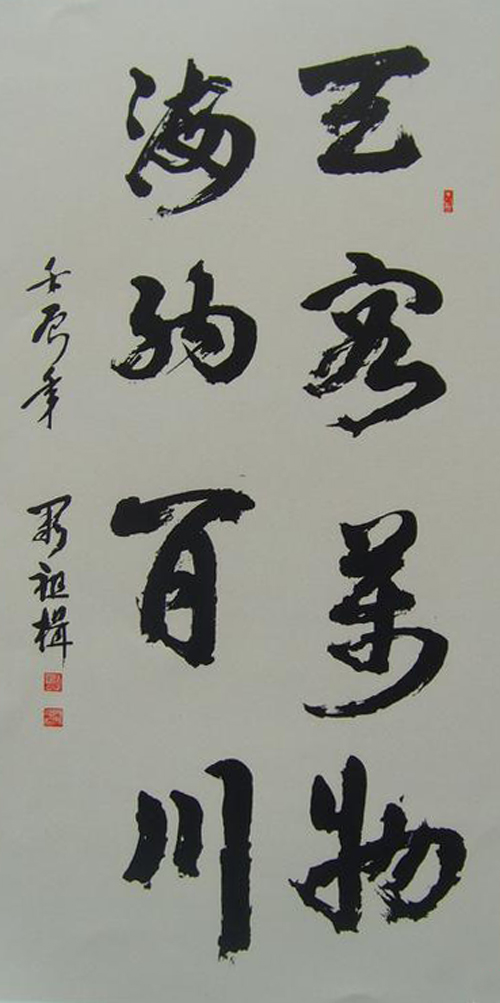 天容萬物
海納百川
壬辰年 祖楫